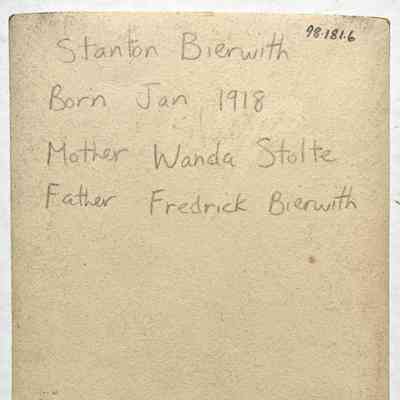 98.181.6
Stanton Bierwith
Born Jan 1918
Mother Wanda Stolte
Father Fredrick Bierwith